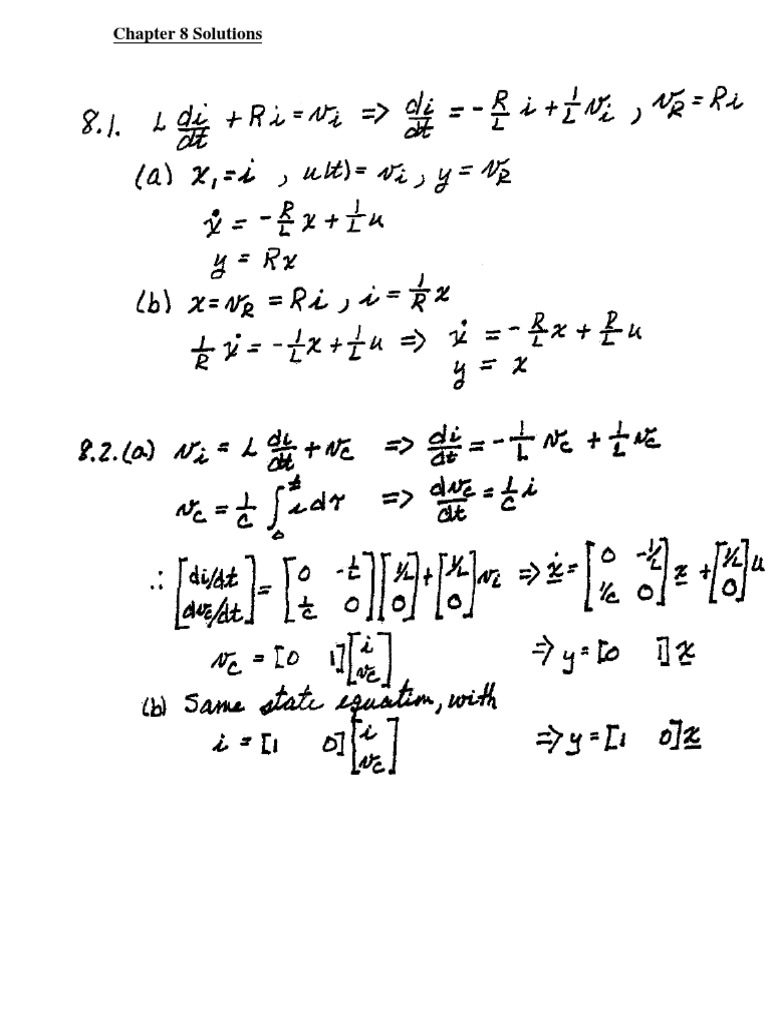 Chapter 8 Solutions
8.1. L di/dt + Ri = vi => di/dt = - R/L i + 1/L vi , vR = Ri
(a) x1 = i , u(t) = vi , y = vR
ẋ = - R/L x + 1/L u
y = Rx
(b) x = vR = Ri , i = 1/R x
1/R ẋ = - 1/L x + 1/L u => ẋ = - R/L x + R/L u
y = x
8.2. (a) vi = L di/dt + vc => di/dt = - 1/L vc + 1/L vc
vc = 1/C ∫0^t i dτ => dvc/dt = 1/C i
∴ [di/dt; dvc/dt] = [0 -1/L; 1/C 0] [1/L; 0] + [1/L; 0] vi => ẋ = [0 -1/L; 1/C 0] x + [1/L; 0] u
vc = [0 1] [i; vc] => y = [0 1] x
(b) Same state equation, with
i = [1 0] [i; vc] => y = [1 0] x